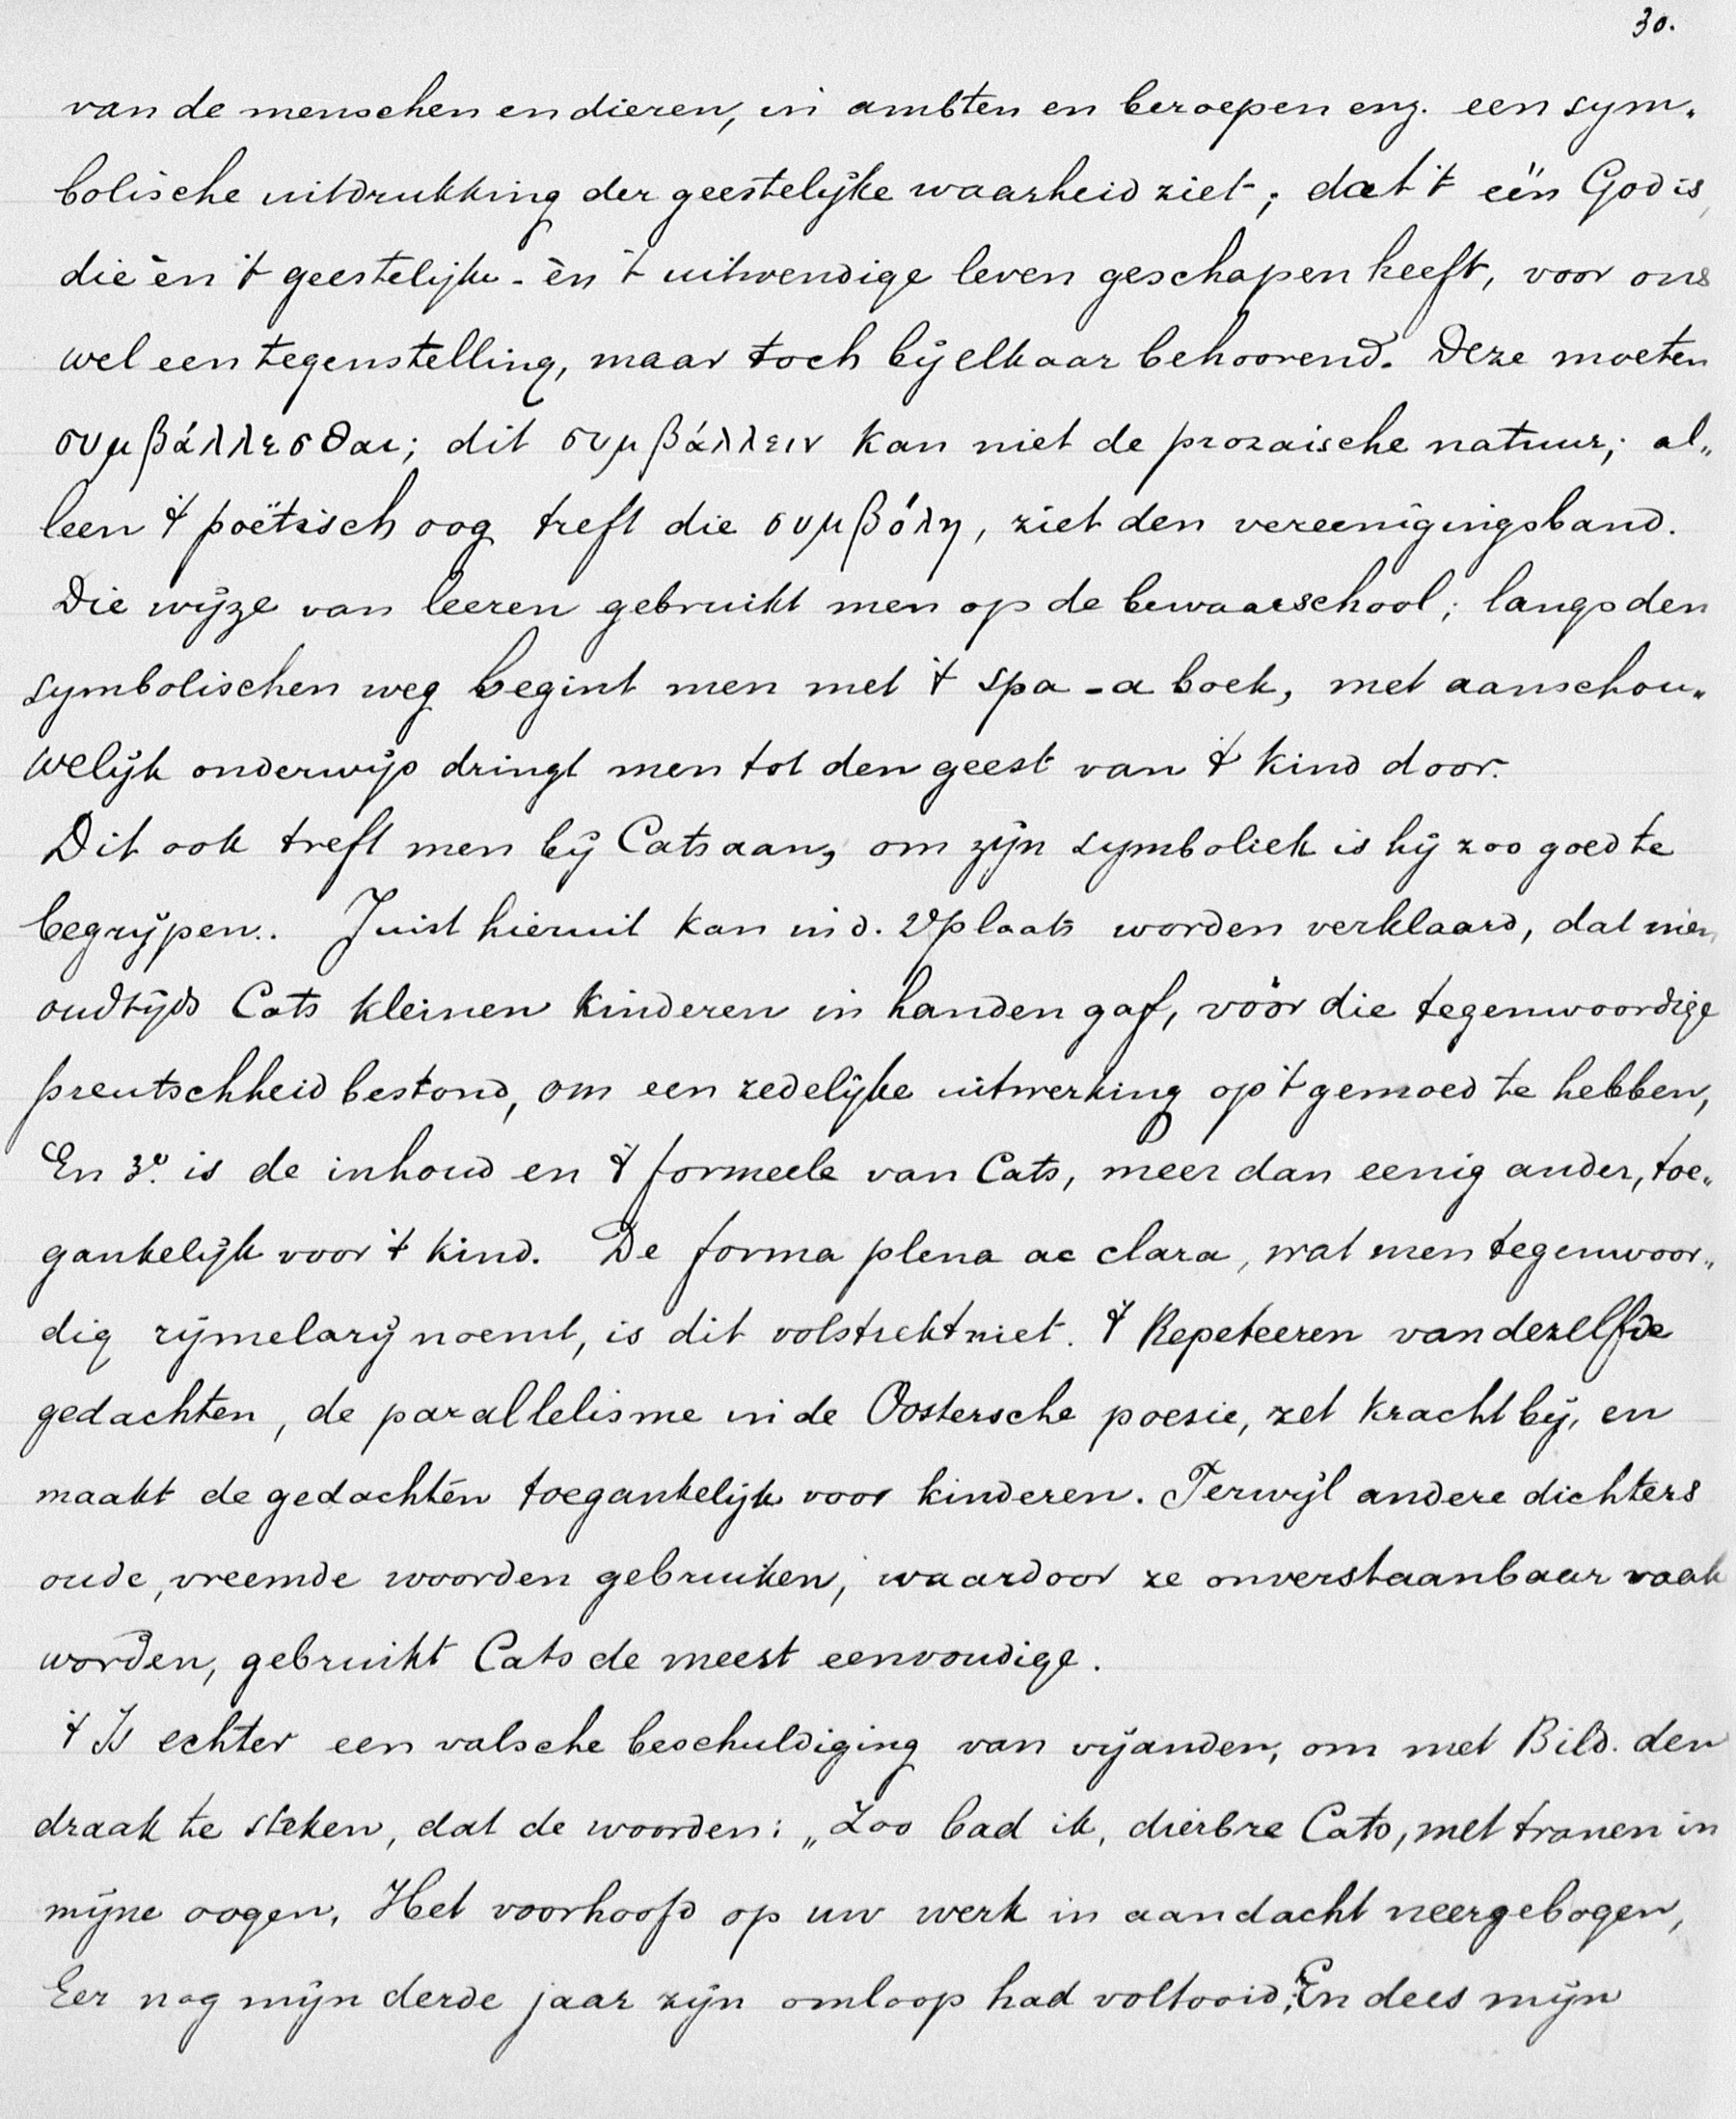 30.
van de menschen en dieren, in ambten en beroepen enz. een sym„
bolische uitdrukking der geestelijke waarheid ziet; dat 't één God is,
die èn 't geestelijke - èn 't uitwendige leven geschapen heeft, voor ons
wel een tegenstelling, maar toch bij elkaar behoorend. Deze moeten
συμβάλλεσθαι; dit συμβάλλειν kan niet de prozaische natuur; al„
leen 't poëtisch oog treft die συμβόλη, ziet den vereenigingsband.
Die wijze van leeren gebruikt men op de bewaarschool; langs den
symbolischen weg begint men met 't spa-a boek, met aanschou„
welijk onderwijs dringt men tot den geest van 't kind door.
Dit ook treft men bij Cats aan, om zijn symboliek is hij zoo goed te
begrijpen.. Juist hieruit kan in d. 2e plaats worden verklaard, dat men
oudtijds Cats kleinen kinderen in handen gaf, vóór die tegenwoordige
preutschheid bestond, om een zedelijke uitwerking op 't gemoed te hebben,
En 3e. is de inhoud en 't formeele van Cats, meer dan eenig ander, toe„
gankelijk voor 't kind. De forma plena ac clara, wat men tegenwoor„
dig rijmelarij noemt, is dit volstrekt niet. 't Repeteeren van dezelfde
gedachten, de parallelisme in de Oostersche poesie, zet kracht bij, en
maakt de gedachten toegankelijk voor kinderen. Terwijl andere dichters
oude, vreemde woorden gebruiken, waardoor ze onverstaanbaar vaak
worden, gebruikt Cats de meest eenvoudige.
't Is echter een valsche beschuldiging van vijanden, om met Bild. den
draak te steken, dat de woorden: „Zoo bad ik, dierbre Cats, met tranen in
mijne oogen, Het voorhoofd op uw werk in aandacht neergebogen,
Eer nog mijn derde jaar zijn omloop had voltooid; En dees mijn